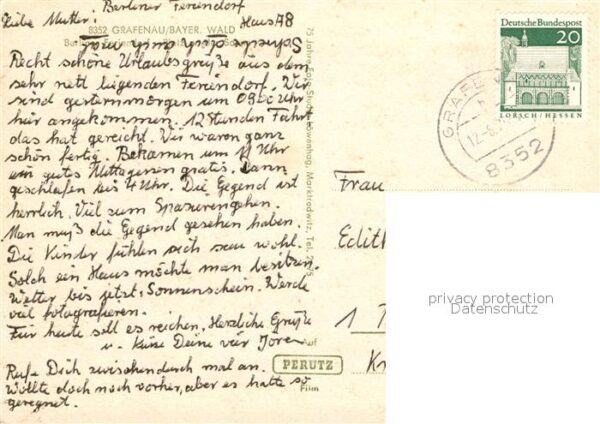 Berliner Feriendorf
Liebe Mutter. Haus A8
8352 GRAFENAU/BAYER. WALD
Recht schöne Urlaubsgrüße aus dem
sehr nett liegenden Feriendorf. Wir
sind gestern morgen um 09.00 Uhr
hier angekommen. 12 Stunden Fahrt
das hat gereicht. Wir waren ganz
schön fertig. Bekamen um 11 Uhr
ein gutes Mittagessen gratis. Dann
geschlafen bis 4 Uhr. Die Gegend ist
herrlich. Viel zum Spazierengehen.
Man muß die Gegend gesehen haben.
Die Kinder fühlen sich sau wohl.
Solch ein Haus möchte man besitzen.
Wetter bis jetzt: Sonnenschein. Werde
viel fotografieren.
Für heute soll es reichen. Herzliche Grüße
u. Küße Deine vier Jören
Rufe Dich zwischendurch mal an.
Wollte doch noch vorher, aber es hatte so
geregnet.
75 Jahre Foto Marktredwitz, Tel.
Auf
PERUTZ
Film
Deutsche Bundespost
20
LORSCH/HESSEN
GRAFE
12.-6.
8352
Frau
Edith
1
privacy protection
Datenschutz